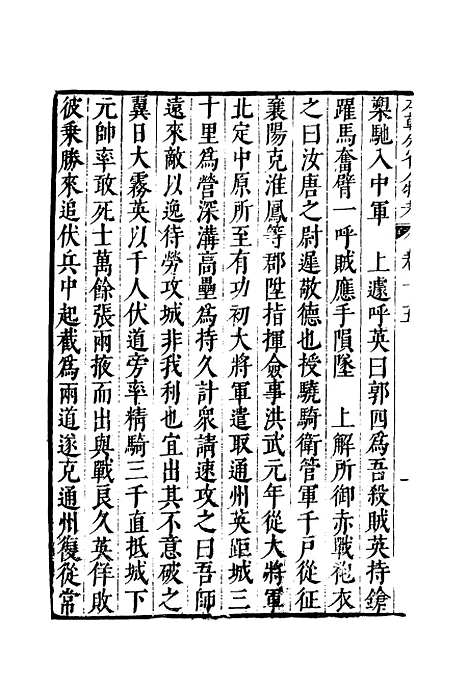 槊馳入中軍　上遽呼英曰郭四爲吾殺賊英持鎗
躍馬奮臂一呼賊應手隕墜　上解所御赤戰袍衣
之曰汝唐之尉遲敬德也授驍騎衛管軍千戶從征
襄陽克淮鳳等郡陞指揮僉事洪武元年從大將軍
北定中原所至有功初大將軍遣取通州英距城三
十里爲營深溝高壘爲持久計衆請速攻之曰吾師
遠來敵以逸待勞攻城非我利也宜出其不意破之
翼日大霧英以千人伏道旁率精騎三千直抵城下
元帥率敢死士萬餘張兩掖而出與戰良久英佯敗
彼乘勝來追伏兵中起截爲兩道遂克通州復從常